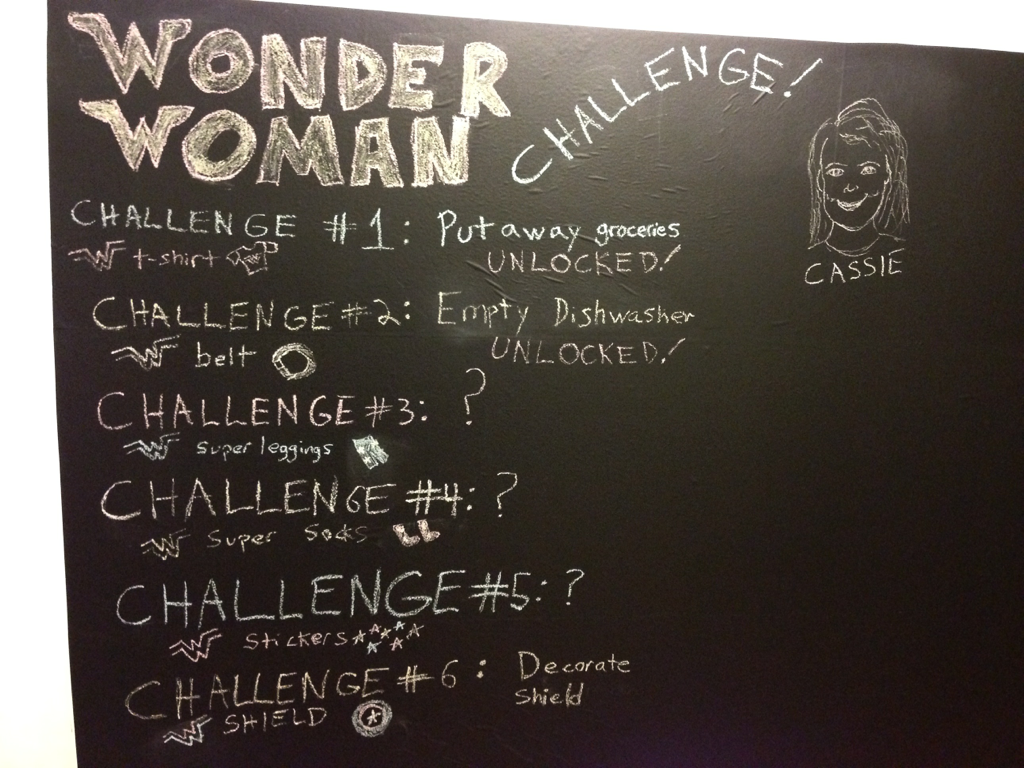 WONDER
WOMAN
CHALLENGE!
CASSIE
CHALLENGE #1: Put away groceries
W t-shirt UNLOCKED!
CHALLENGE #2: Empty Dishwasher
W belt UNLOCKED!
CHALLENGE #3: ?
W super leggings
CHALLENGE #4: ?
W super socks
CHALLENGE #5: ?
W stickers
CHALLENGE #6: Decorate
shield
W SHIELD